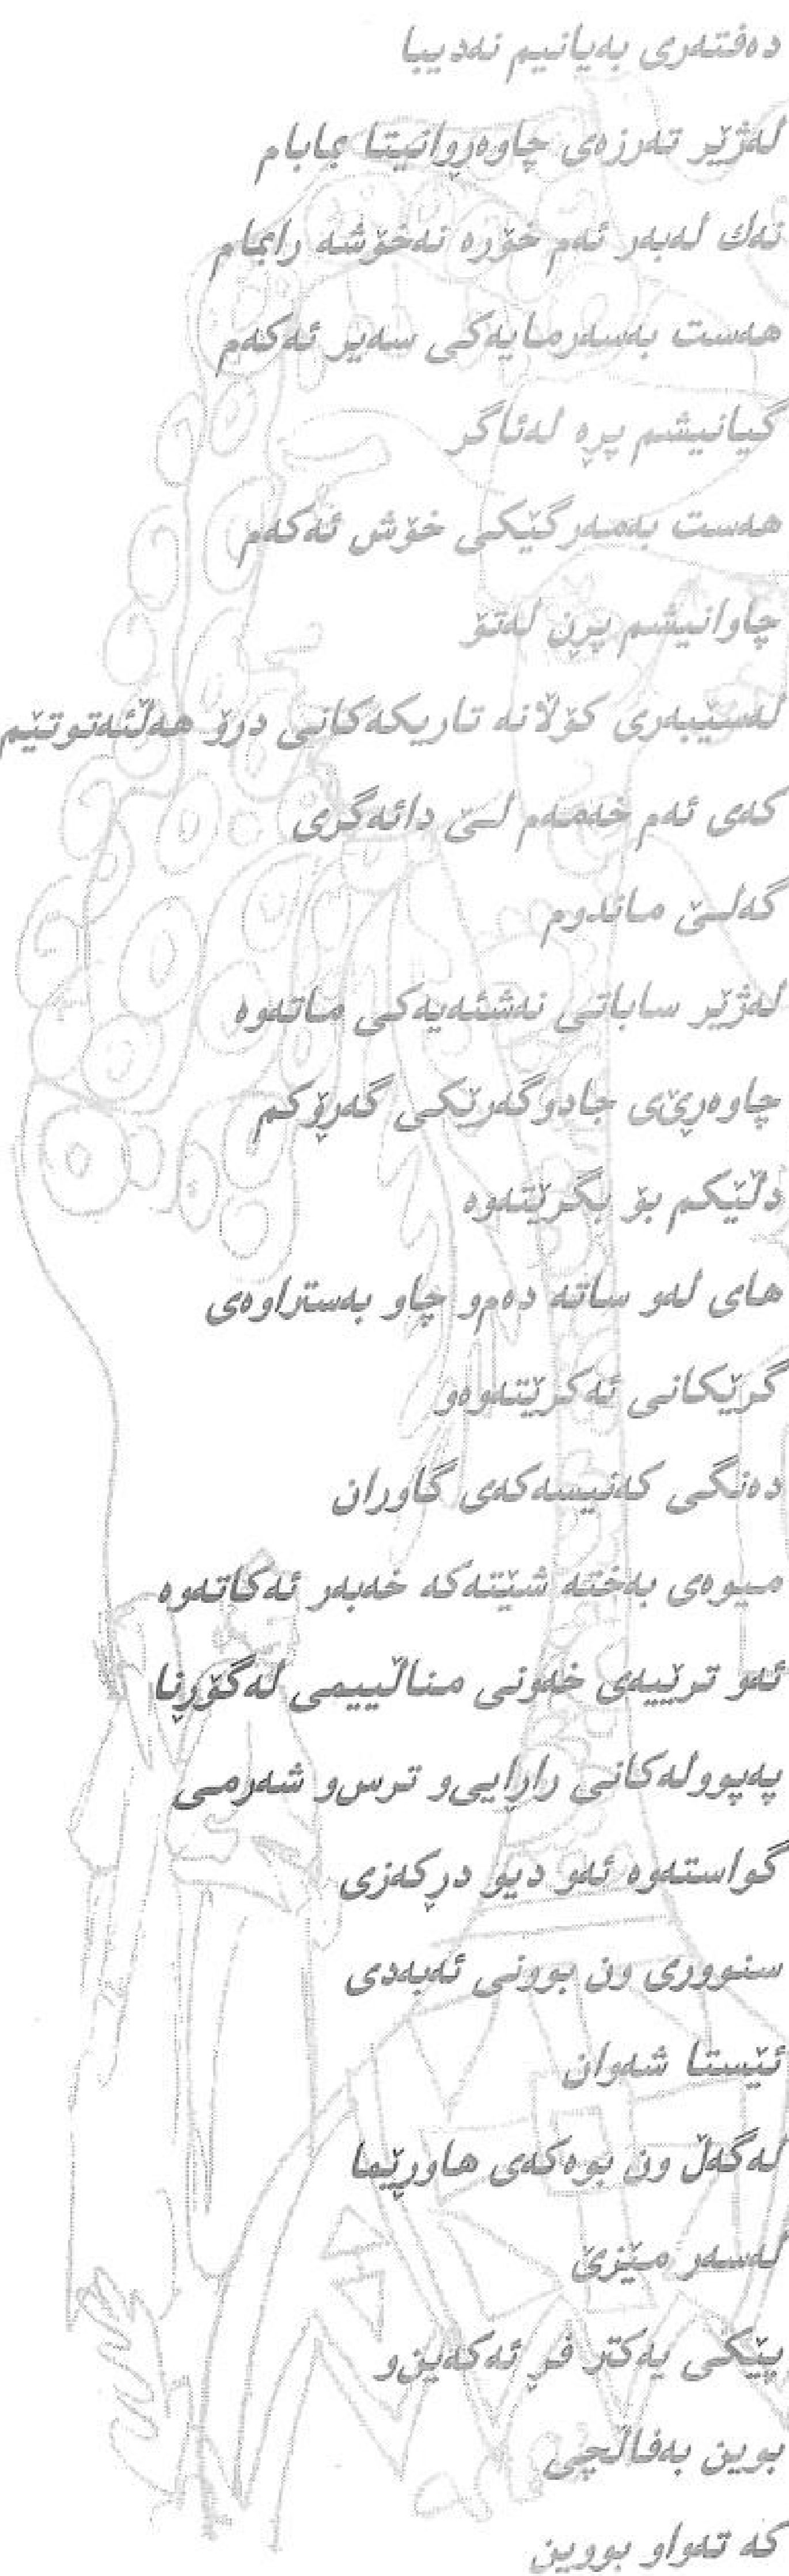 دەفتەری بەیانیم نەدیبا
لەژێر تەرزەی چاوەڕوانیتا بمابام
نەك لەبەر ئەم خۆرە نەخۆشە رابمام
هەست بەسەرمایەکی سەیر ئەکەم
گیانیشم پڕە لەئاگر
هەست بەمەرگێکی خۆش ئەکەم
چاوانیشم پڕن لەتۆ
لەسێبەری کۆڵانە تاریکەکانی درۆ هەڵئەتوتێم
کەی ئەم خەمەم لـێ دائەگری
گەلـێ ماندوم
لەژێر ساباتی نەشئەیەکی ماتەوە
چاوەڕێی جادوگەرێکی گەڕۆکم
دڵێکم بۆ بگرێتەوە
های لەو ساتە دەم‌و چاو بەستراوەی
گرێکانی ئەکرێتەوەو
دەنگی کەنیسەکەی گاوران
میوەی بەختە شێتەکە خەبەر ئەکاتەوە
ئەو ترێیەی خەونی مناڵییمی لەگۆڕنا
پەپوولەکانی راڕایی‌و ترس‌و شەرمی
گواستەوە ئەو دیو دڕکەزی
سنووری ون بوونی ئەبەدی
ئێستا شەوان
لەگەڵ ون بوەکەی هاوڕێما
لەسەر مێزێ
پێکی یەکتر فڕ ئەکەین‌و
بوین بەفاڵچی
کە تەواو بووین